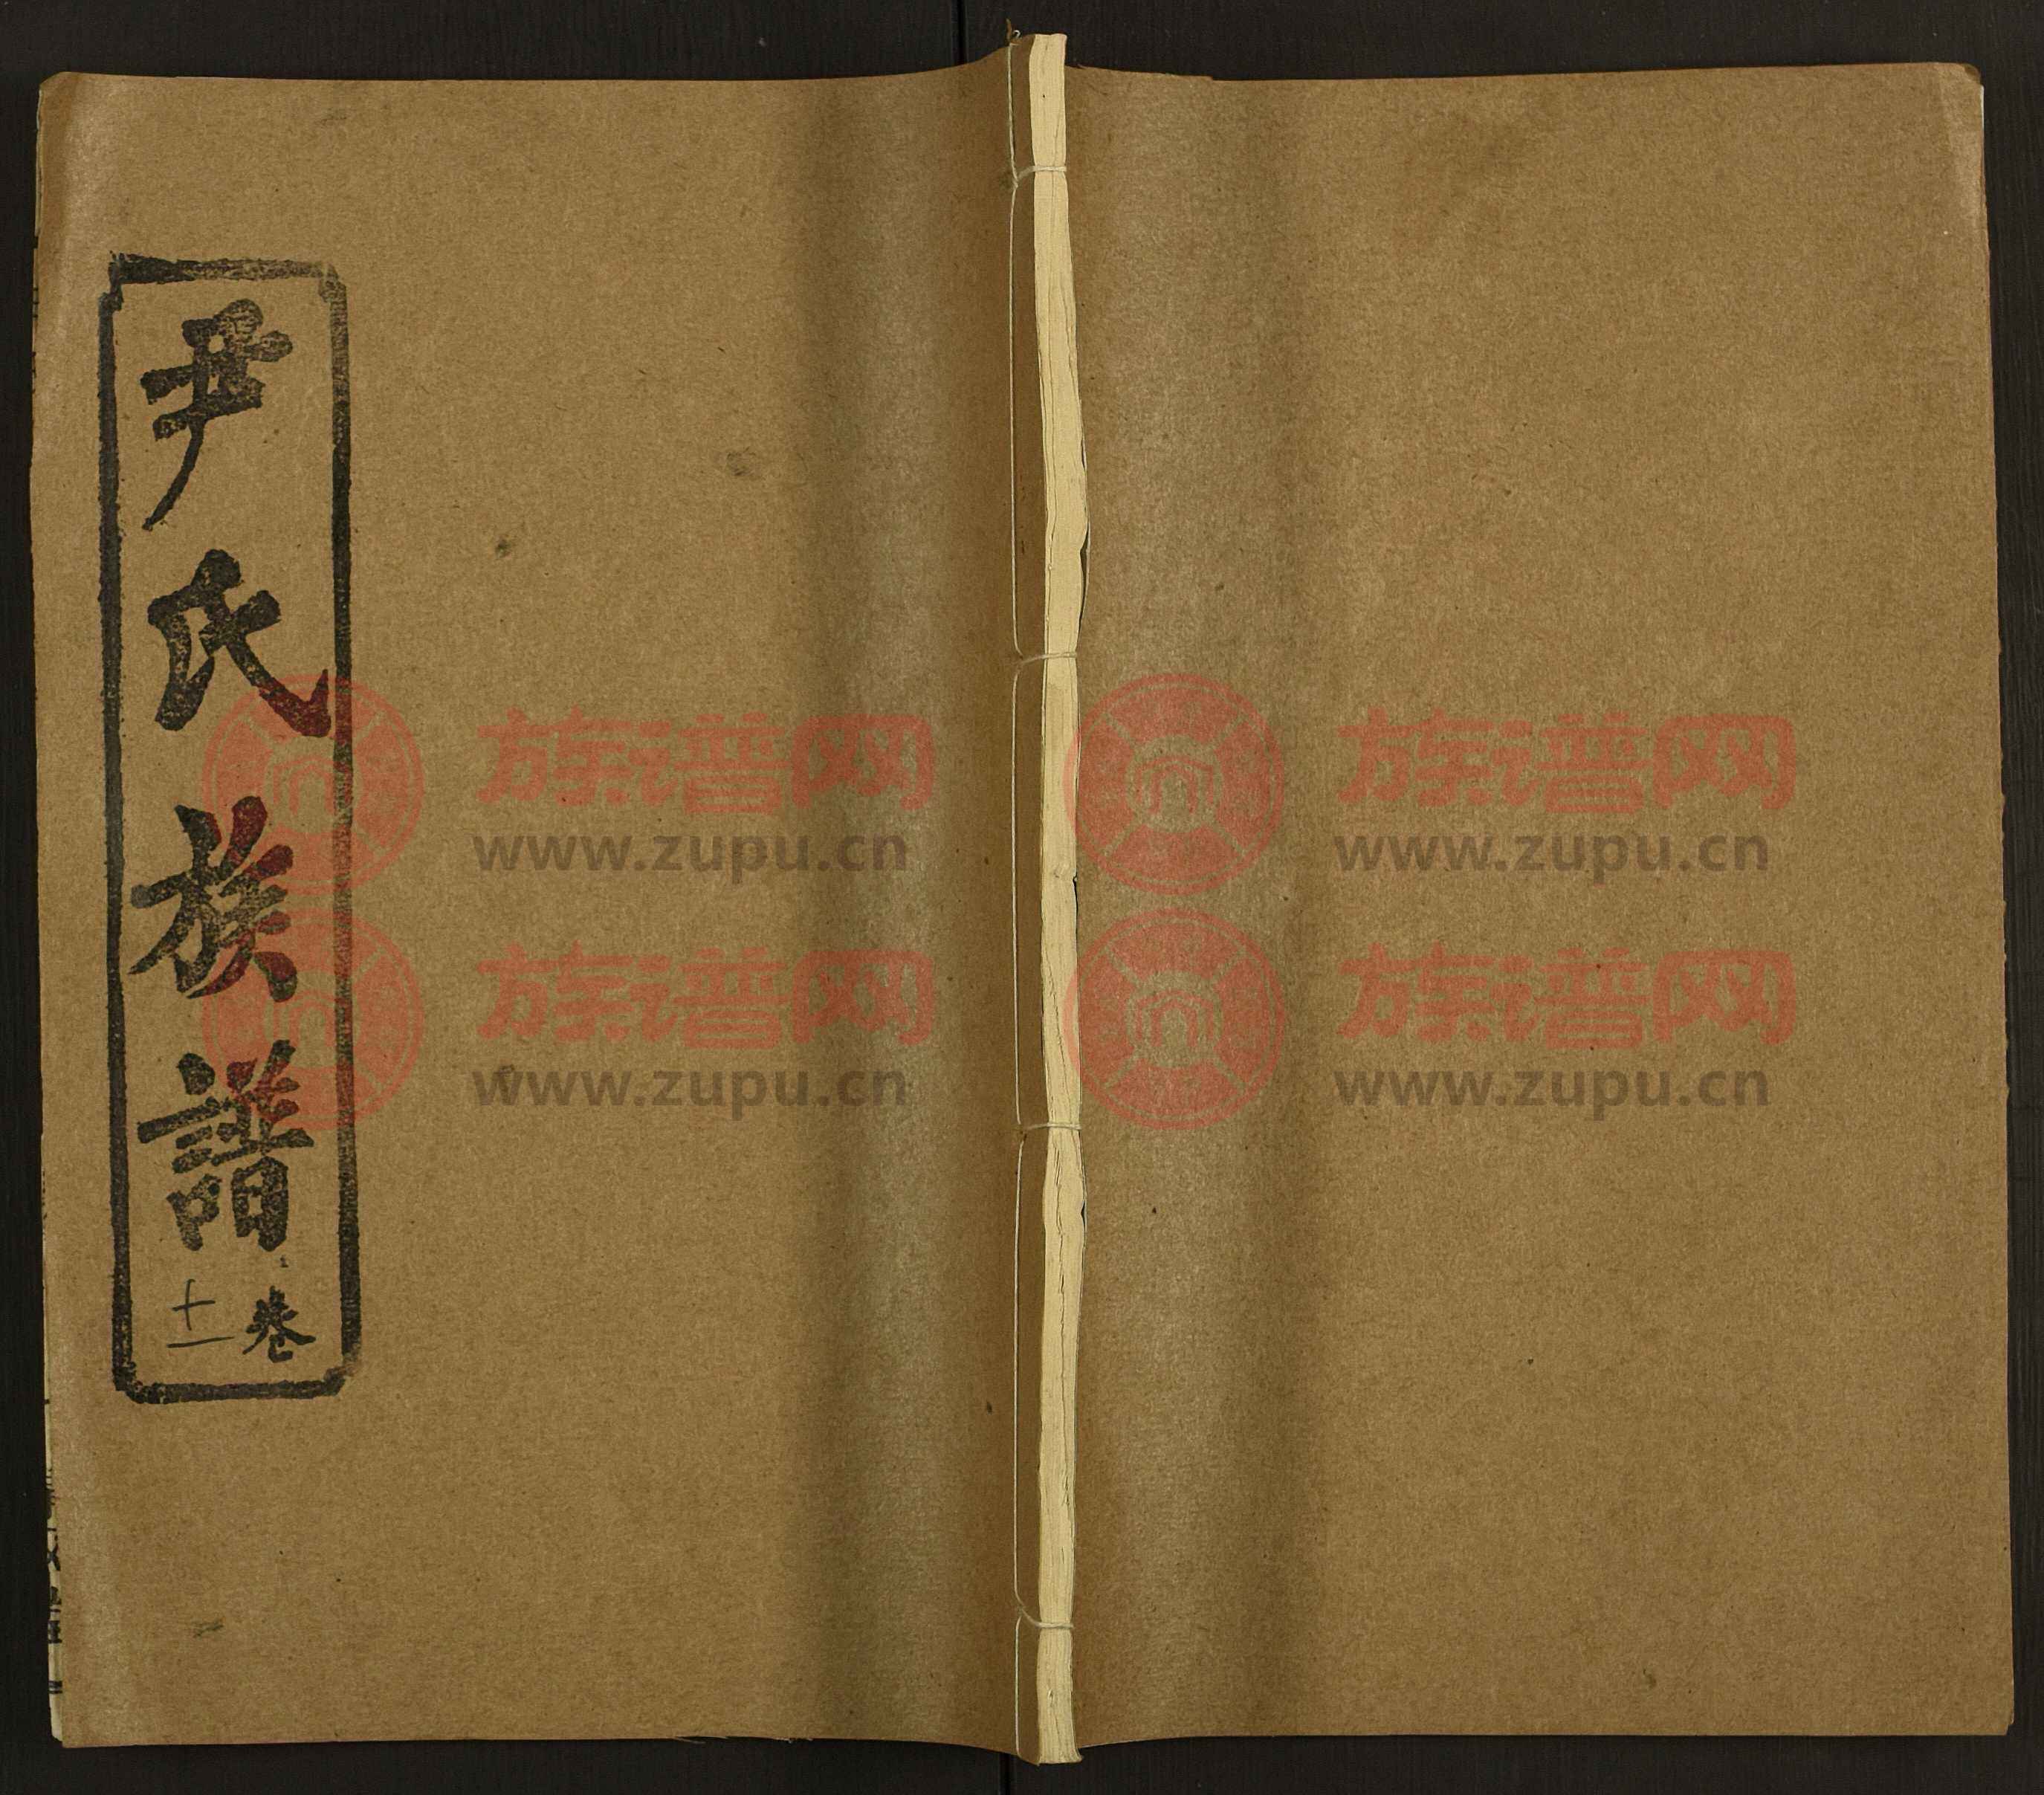 尹氏族譜
卷
十一
族谱网
www.zupu.cn
族谱网
www.zupu.cn
族谱网
www.zupu.cn
族谱网
www.zupu.cn